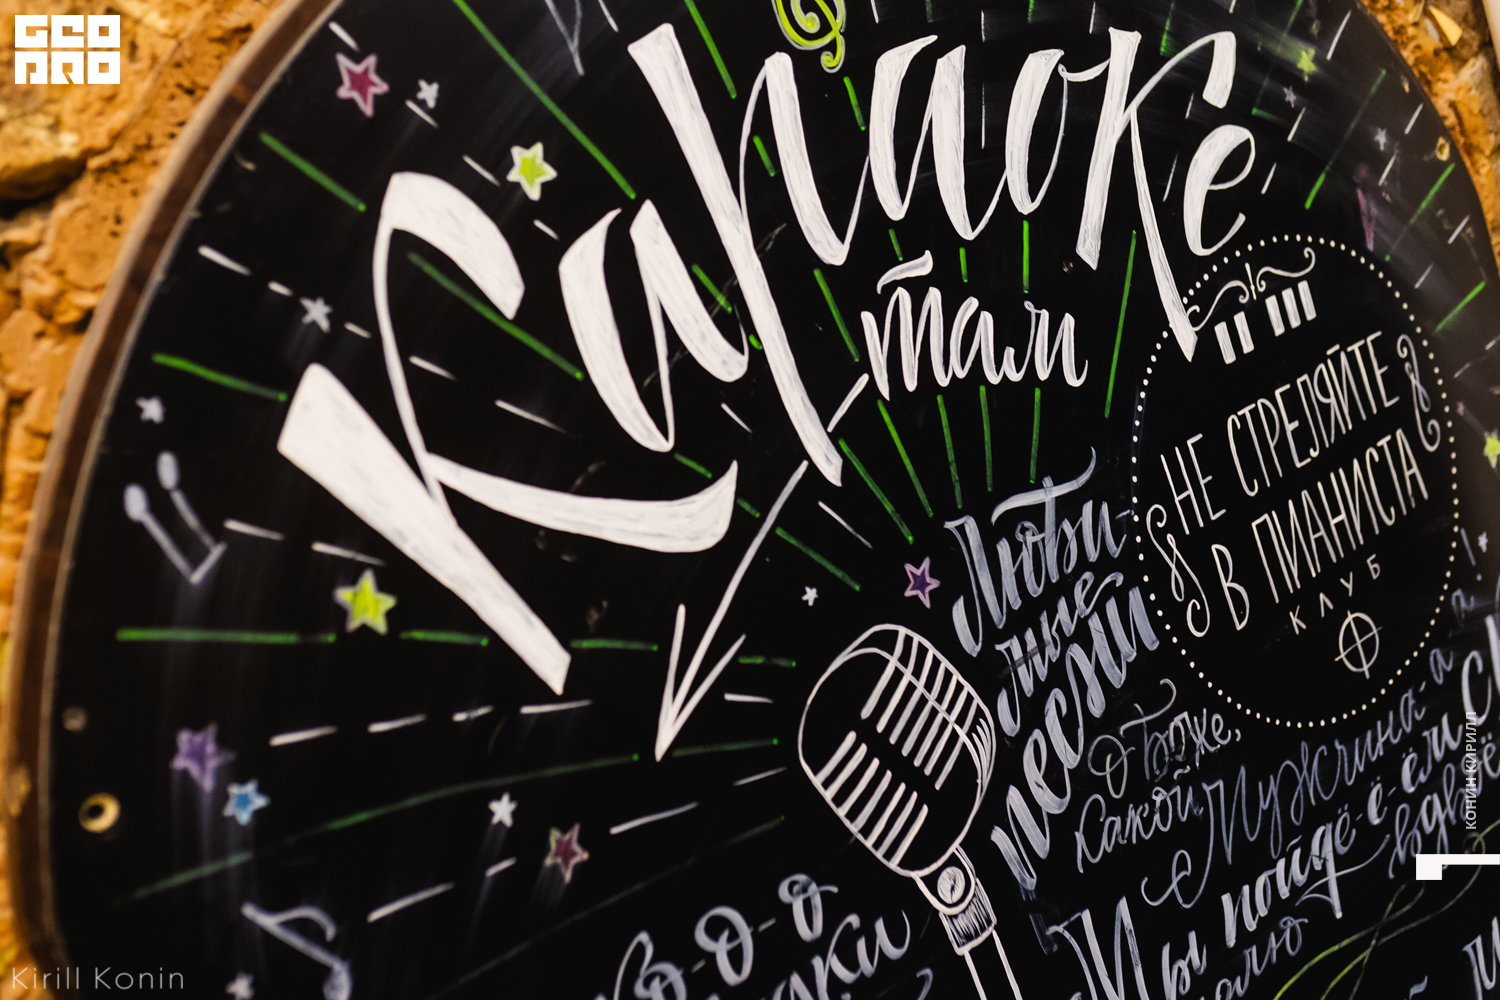 GEO
PRO
Караоке
там
НЕ СТРЕЛЯЙТЕ
В ПИАНИСТА
КЛУБ
Люби-
мые
песни
О Боже,
какой
Мужчина-а
а!
Мы пойдё-ё-ём
вдвоё
КОНИН КИРИЛЛ
Kirill Konin